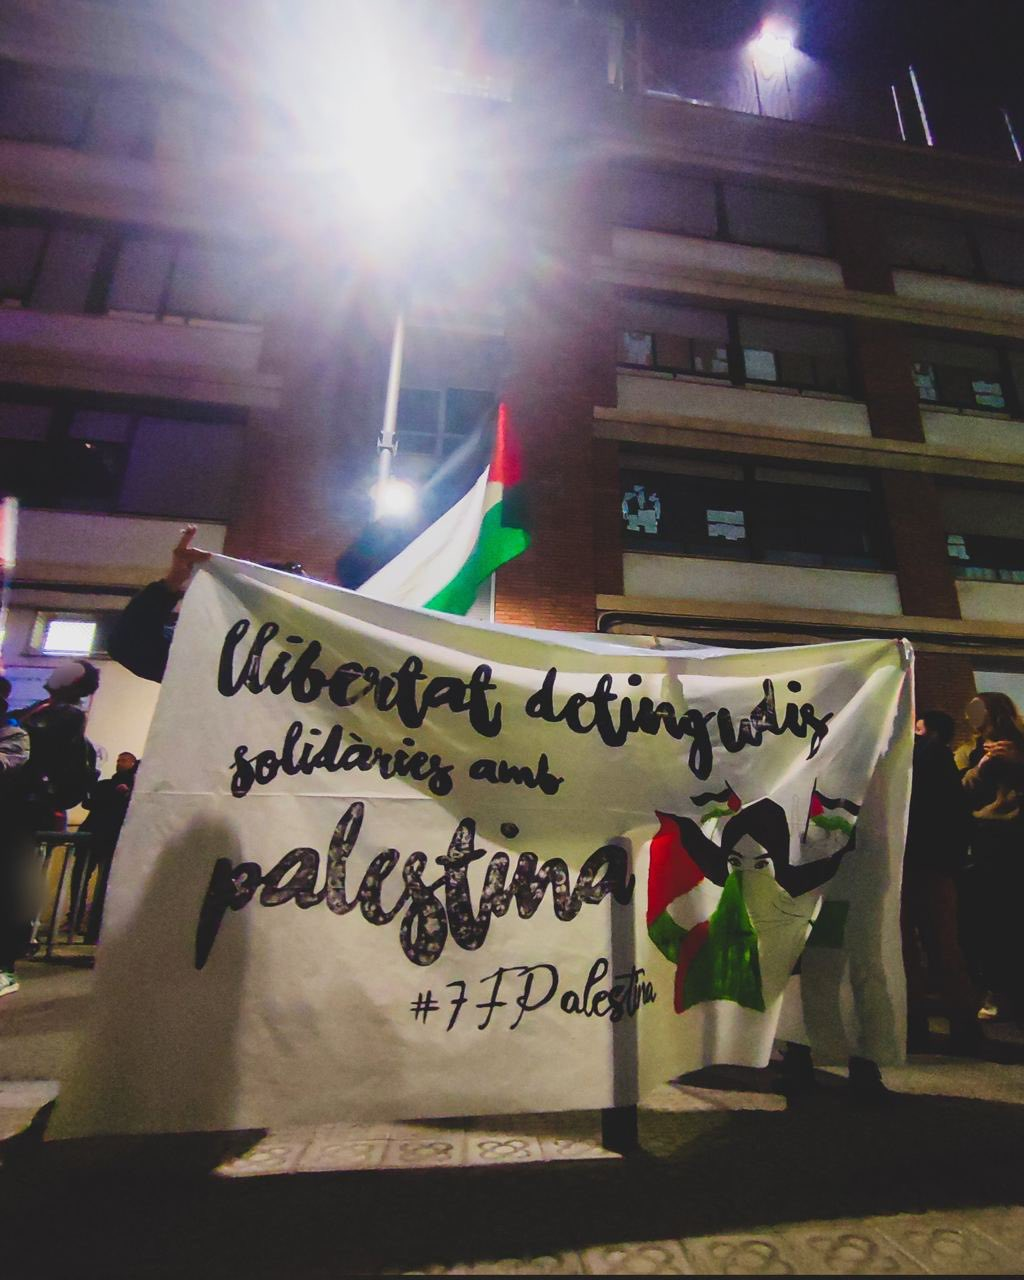 llibertat detingudis
solidàries amb
palestina
#7FPalestina